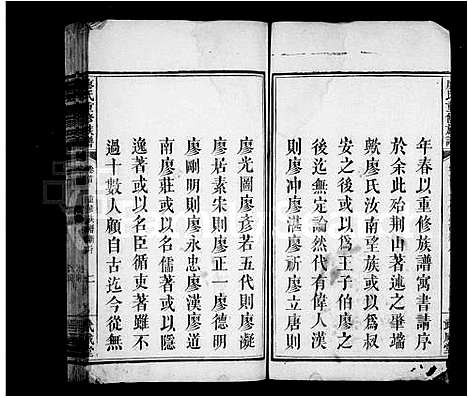 年春以重修族譜寓書請序
於余此殆荆山著述之肇端
歟廖氏汝南望族或以爲叔
安之後或以爲王子伯廖之
後均無定論然代有偉人漢
則廖冲廖湛廖祈廖立唐則
廖光圖廖彥若五代則廖凝
廖居素宋則廖正一廖德明
廖剛明則廖永忠廖漢廖道
南廖莊或以名儒著或以隱
逸著或以名臣循吏著雖不
過十數人顧自古迄今從無
廖氏重修族譜
卷首
武威堂